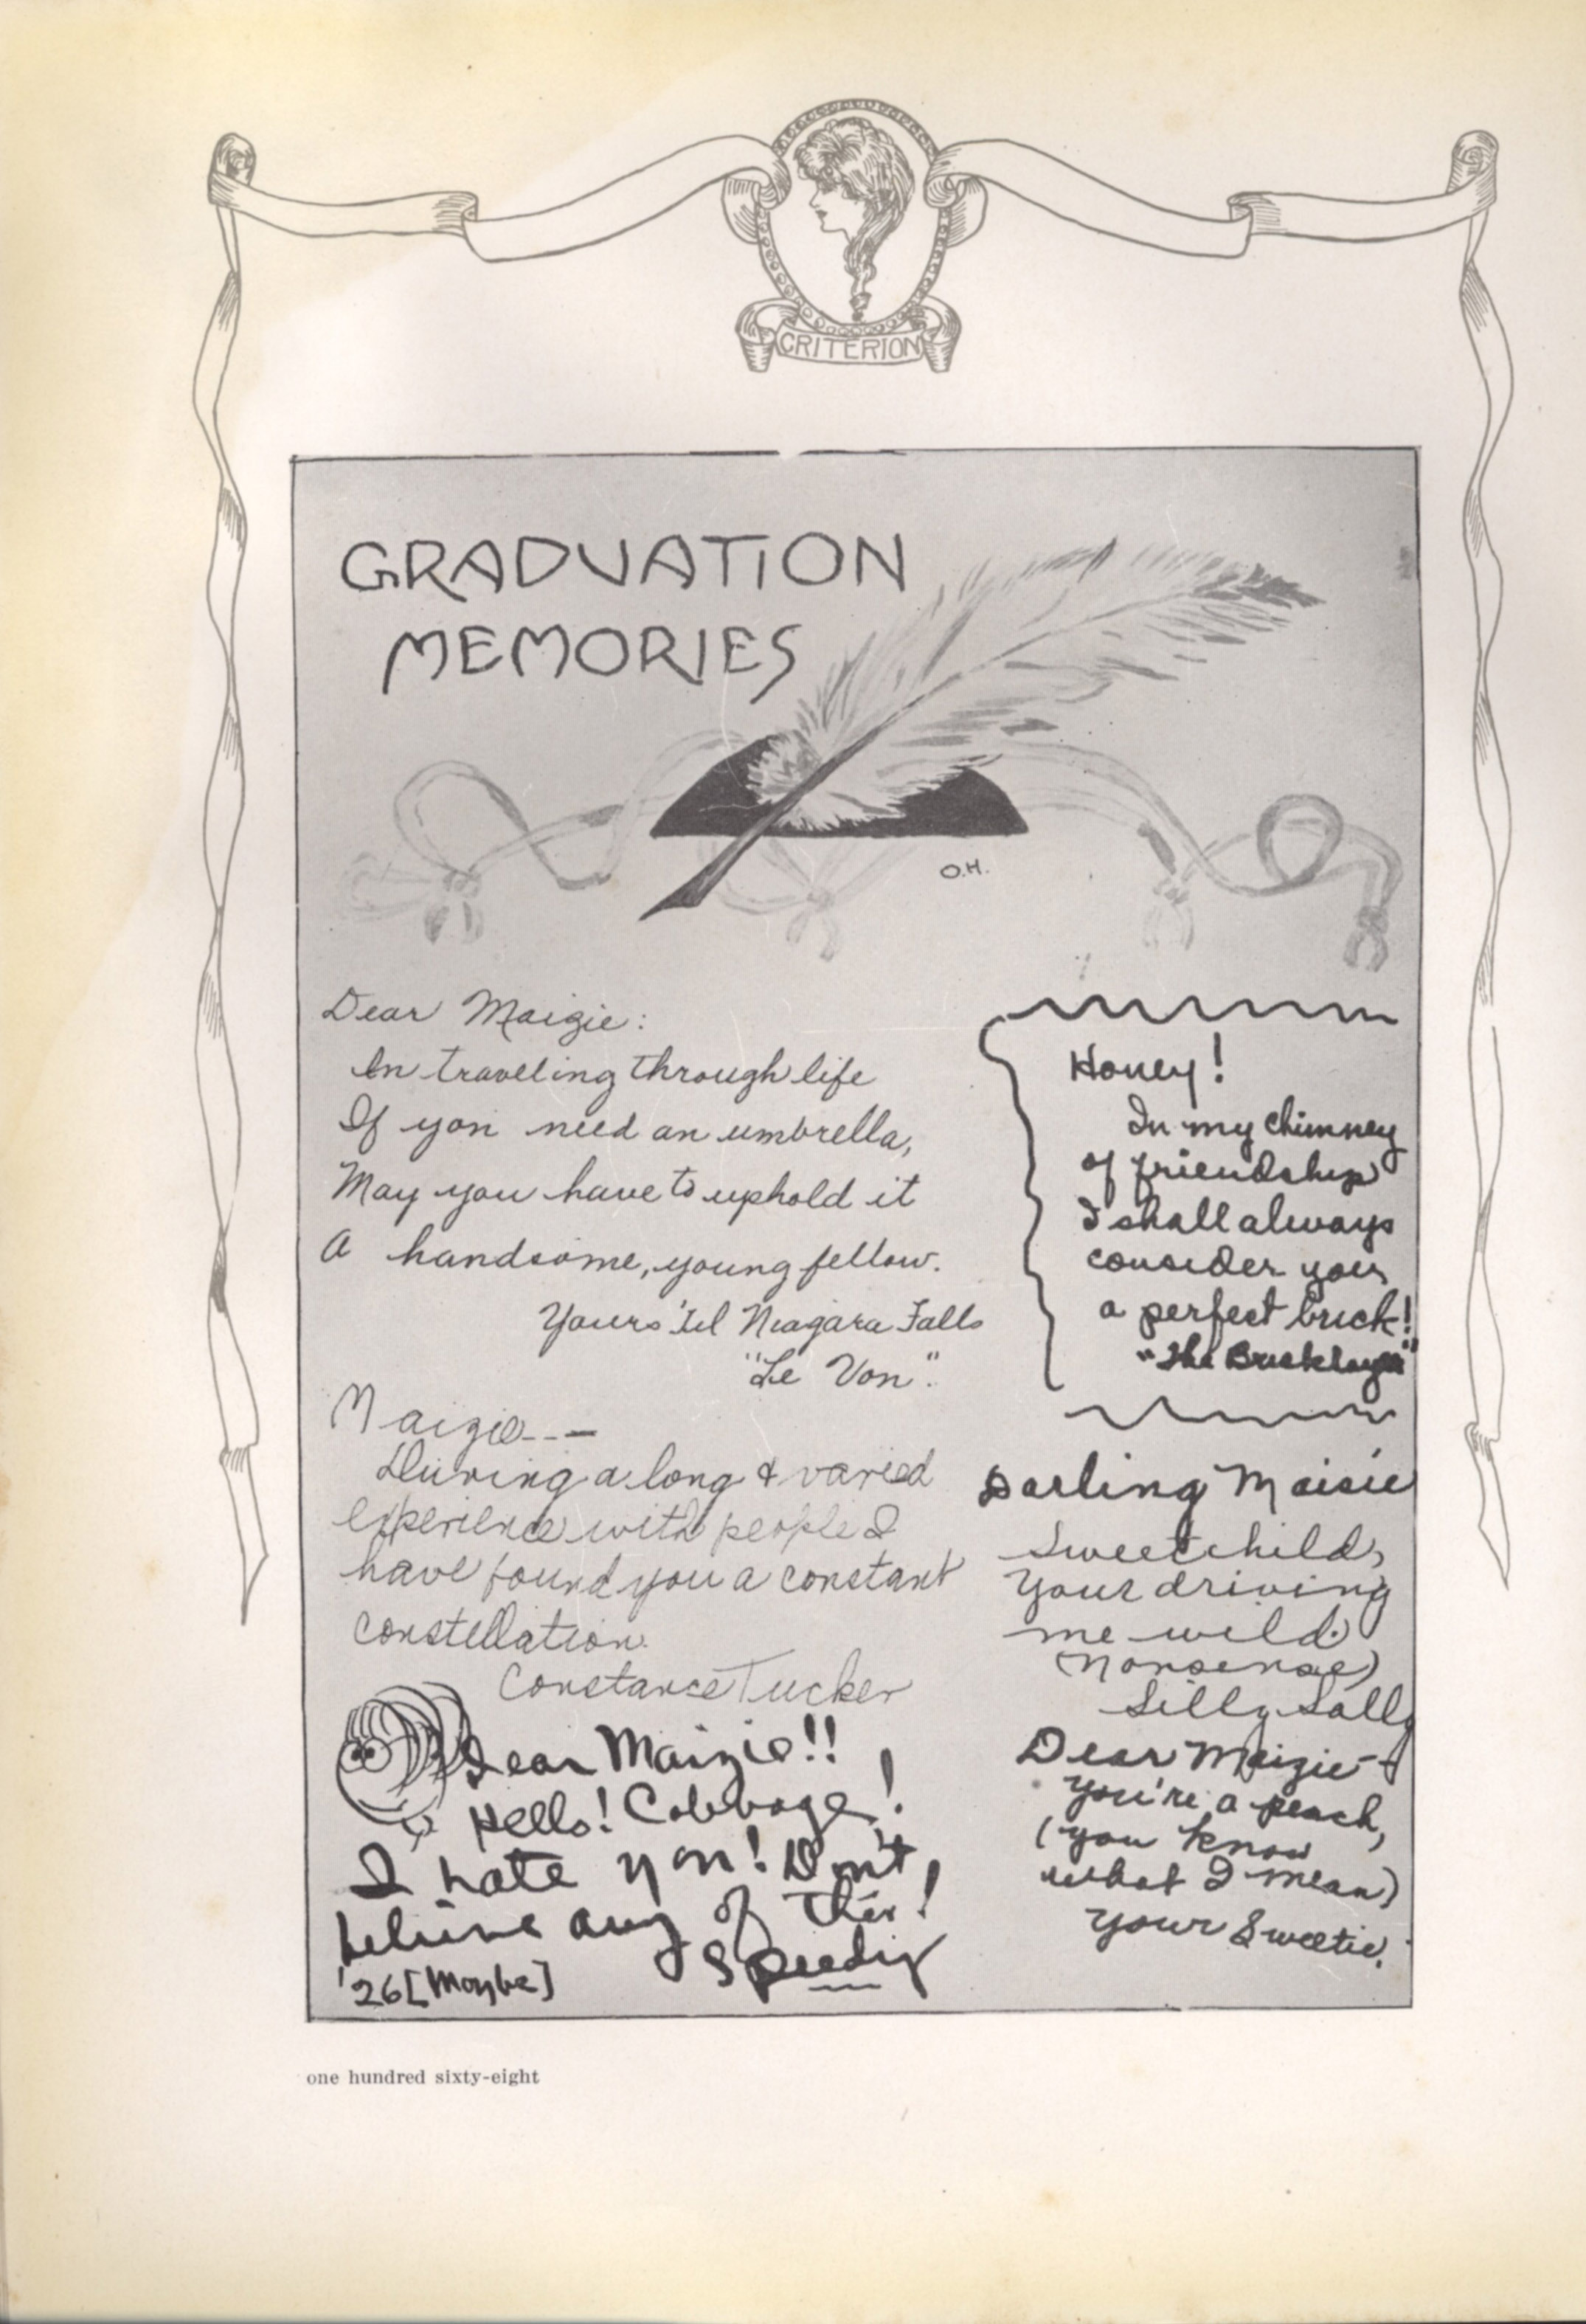 CRITERION
GRADUATION
MEMORIES
O.H.
Dear Maizie:
In traveling through life
If you need an umbrella,
May you have to uphold it
A handsome, young fellow.
Yours 'til Niagara Falls
"Le Von".
Honey!
In my chimney
of friendship
I shall always
consider you
a perfect brick!
"The Bricklayer"
Maizie---
During a long & varied
experience with people I
have found you a constant
constellation.
Constance Tucker
Darling Maisie
Sweet child,
Your driving
me wild.
(Nonsense)
Silly Sally
Dear Maizie!!
Hello! Cabbage!
I hate you! Don't
believe any of this!
Speedy
'26 [Maybe]
Dear Maizie-
You're a peach,
(you know
what I mean)
Your Sweetie.
one hundred sixty-eight